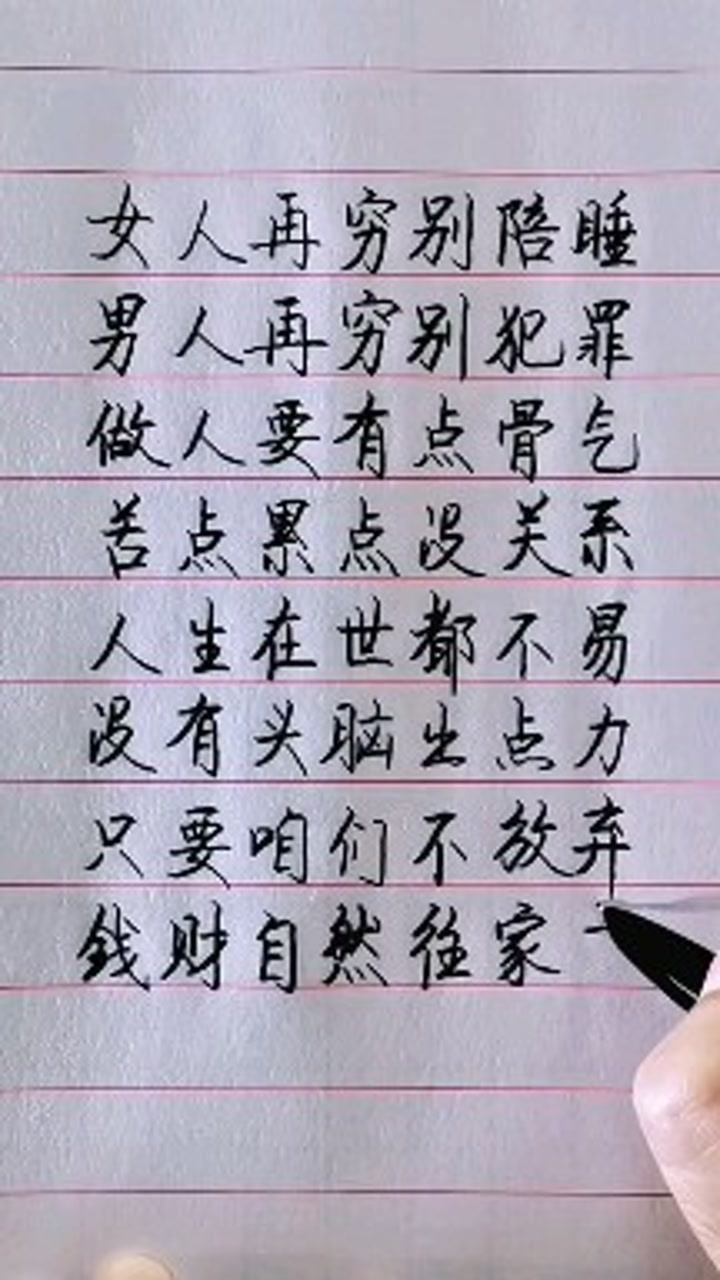 女人再穷别陪睡
男人再穷别犯罪
做人要有点骨气
苦点累点没关系
人生在世都不易
没有头脑出点力
只要咱们不放弃
钱财自然往家